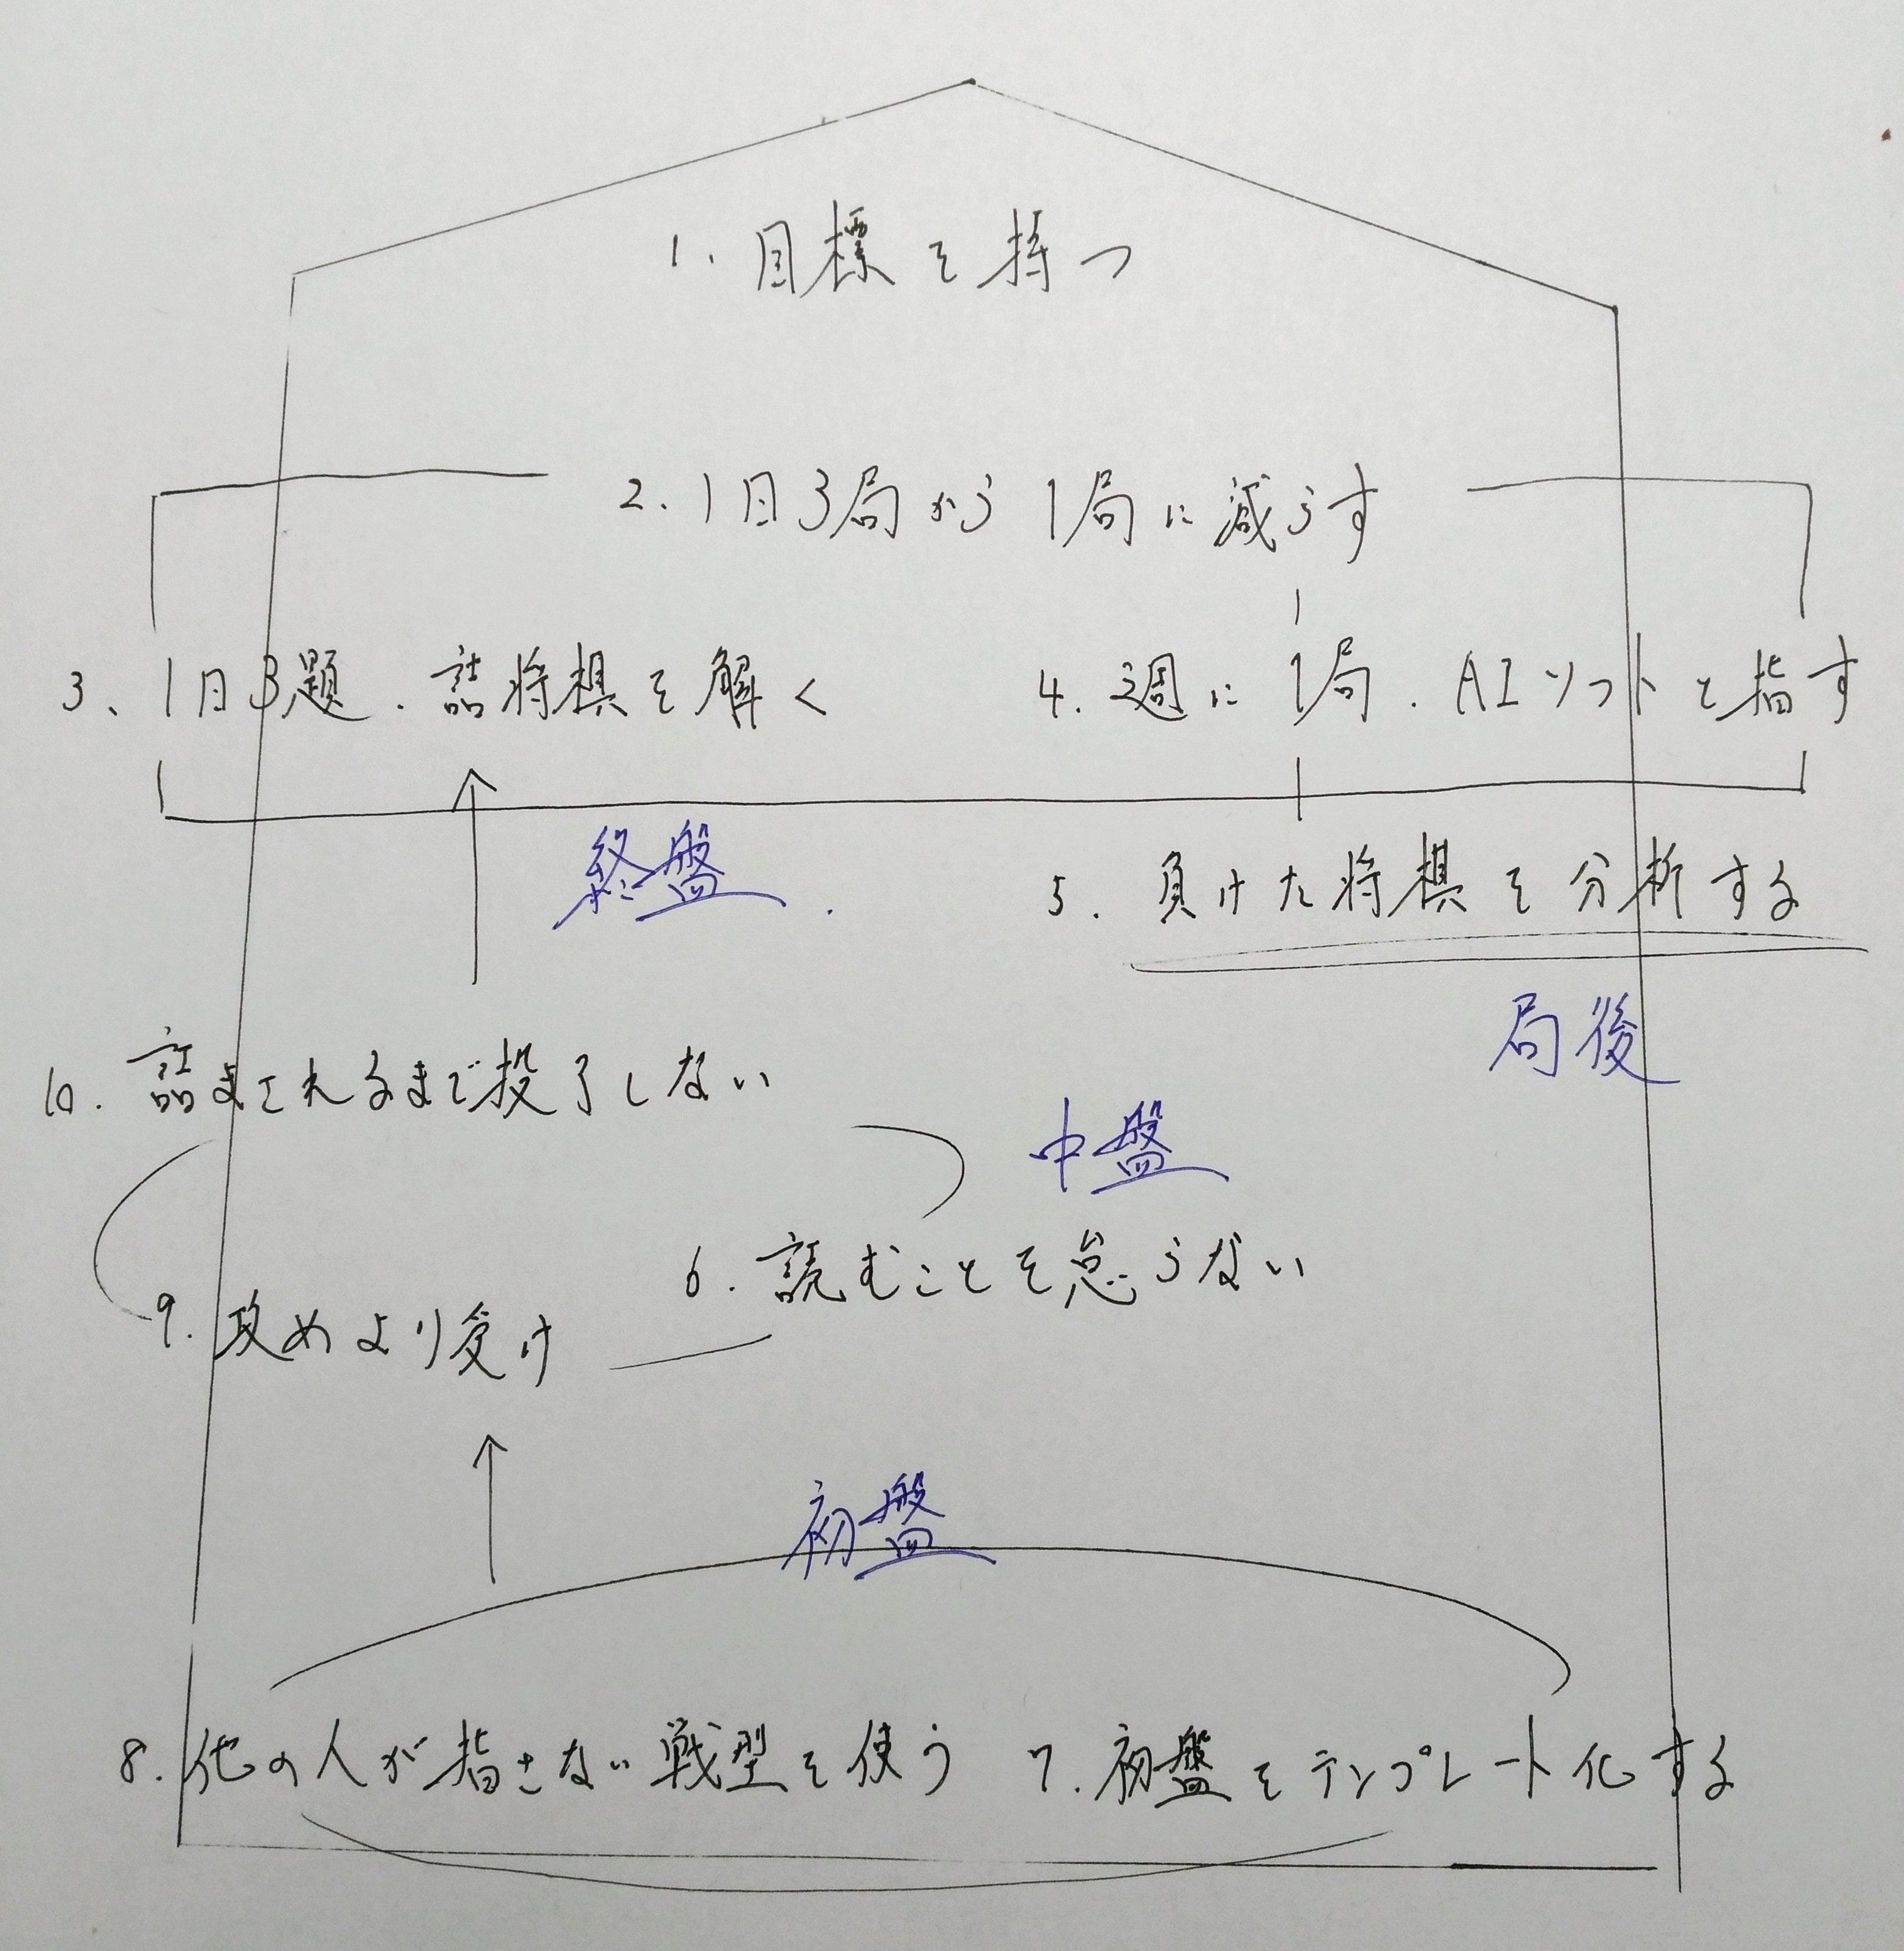 1. 目標を持つ
2. 1日3局から1局に減らす
3、1日3題.詰将棋を解く
4. 週に1局.AIソフトと指す
終盤
5. 負けた将棋を分析する
局後
10. 詰まされるまで投了しない
中盤
6. 読むことを怠らない
9. 攻めより受け
初盤
8. 他の人が指さない戦型を使う
7. 初盤をテンプレート化する